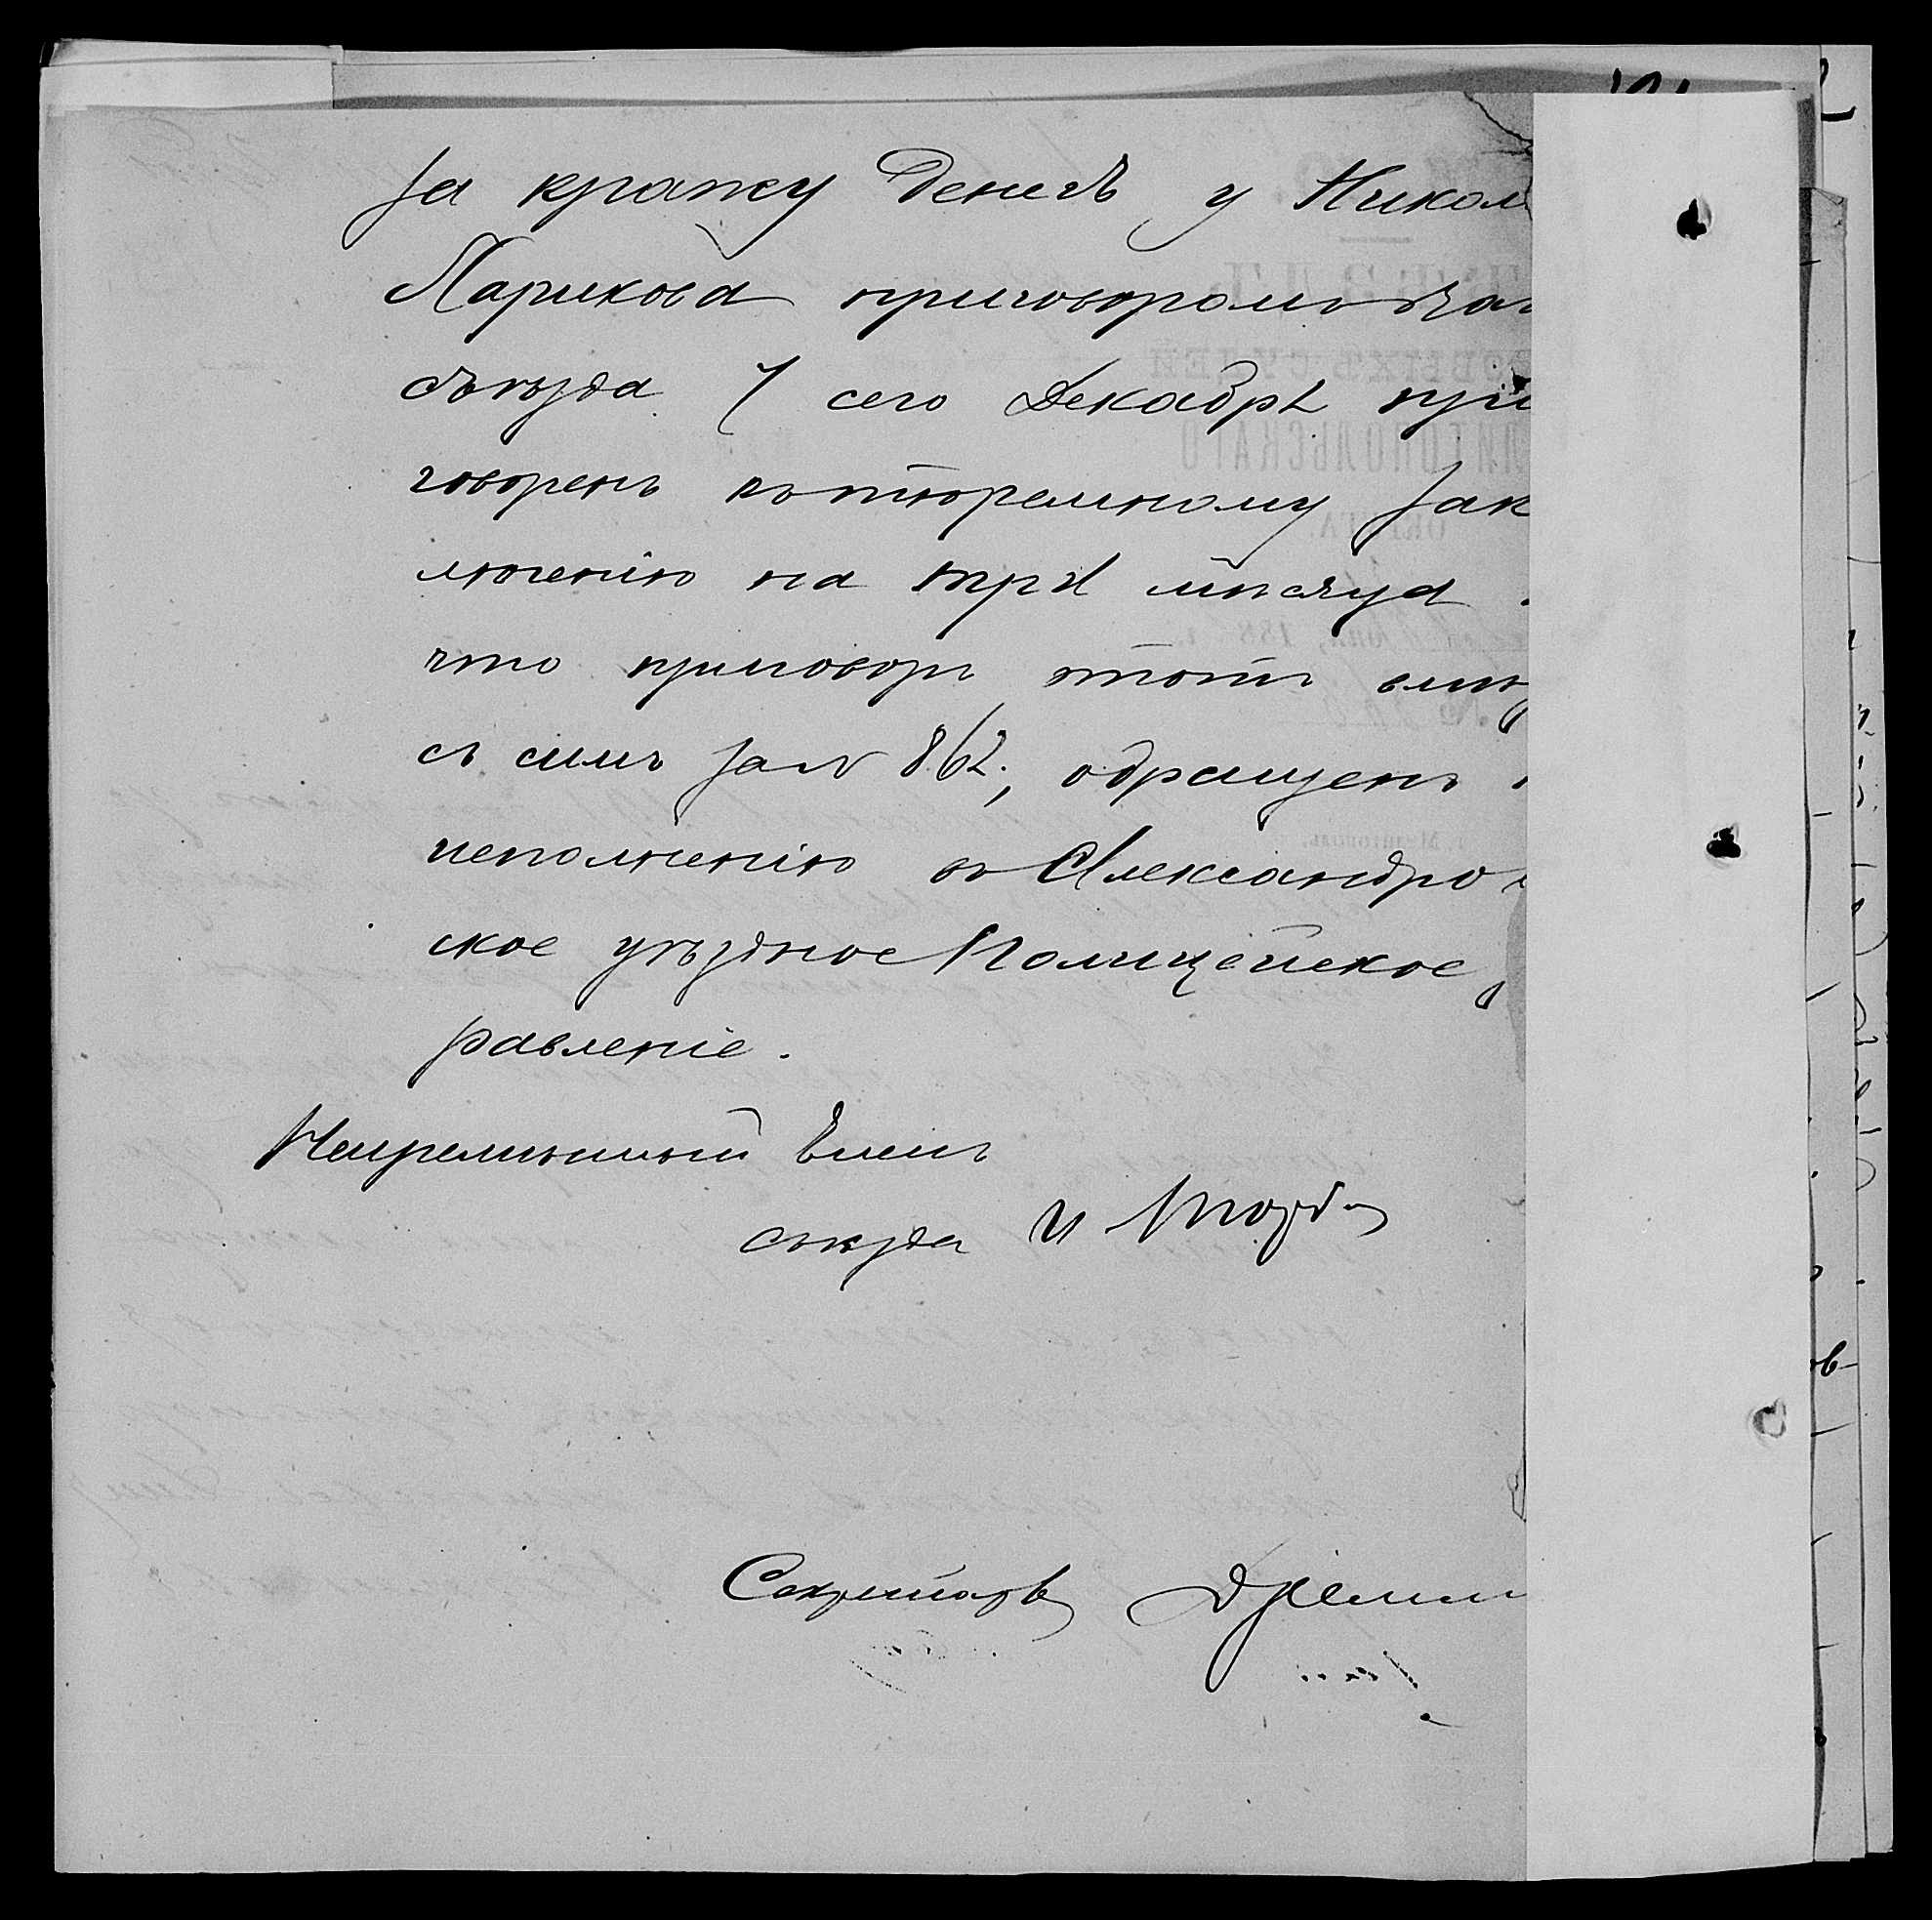 за кражу денегъ у Никол
Ларикова приговоромъ
съѣзда 7 сего Декабря при
говоренъ къ тюремному зак
люченію на три мѣсяца
что приговоръ этотъ вмѣ
съ симъ за № 862, обращенъ
исполненію въ Александро
ское уѣздное Полицейское
равленіе.
Непремѣнный Членъ
съѣзда И
Секретарь